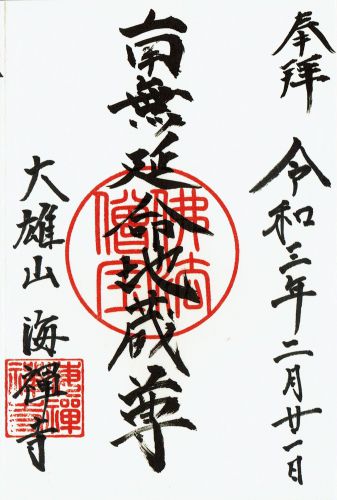 奉拝
令和三年二月廿一日
南無延命地蔵尊
佛法僧宝
大雄山 海禅寺